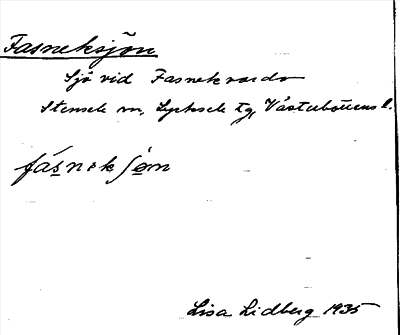 Fasneksjön
Sjö vid Fasnekvardo
Stensele sn, Lycksele tg, Västerbottens l.
fásneksjøn
Lisa Lidberg 1935